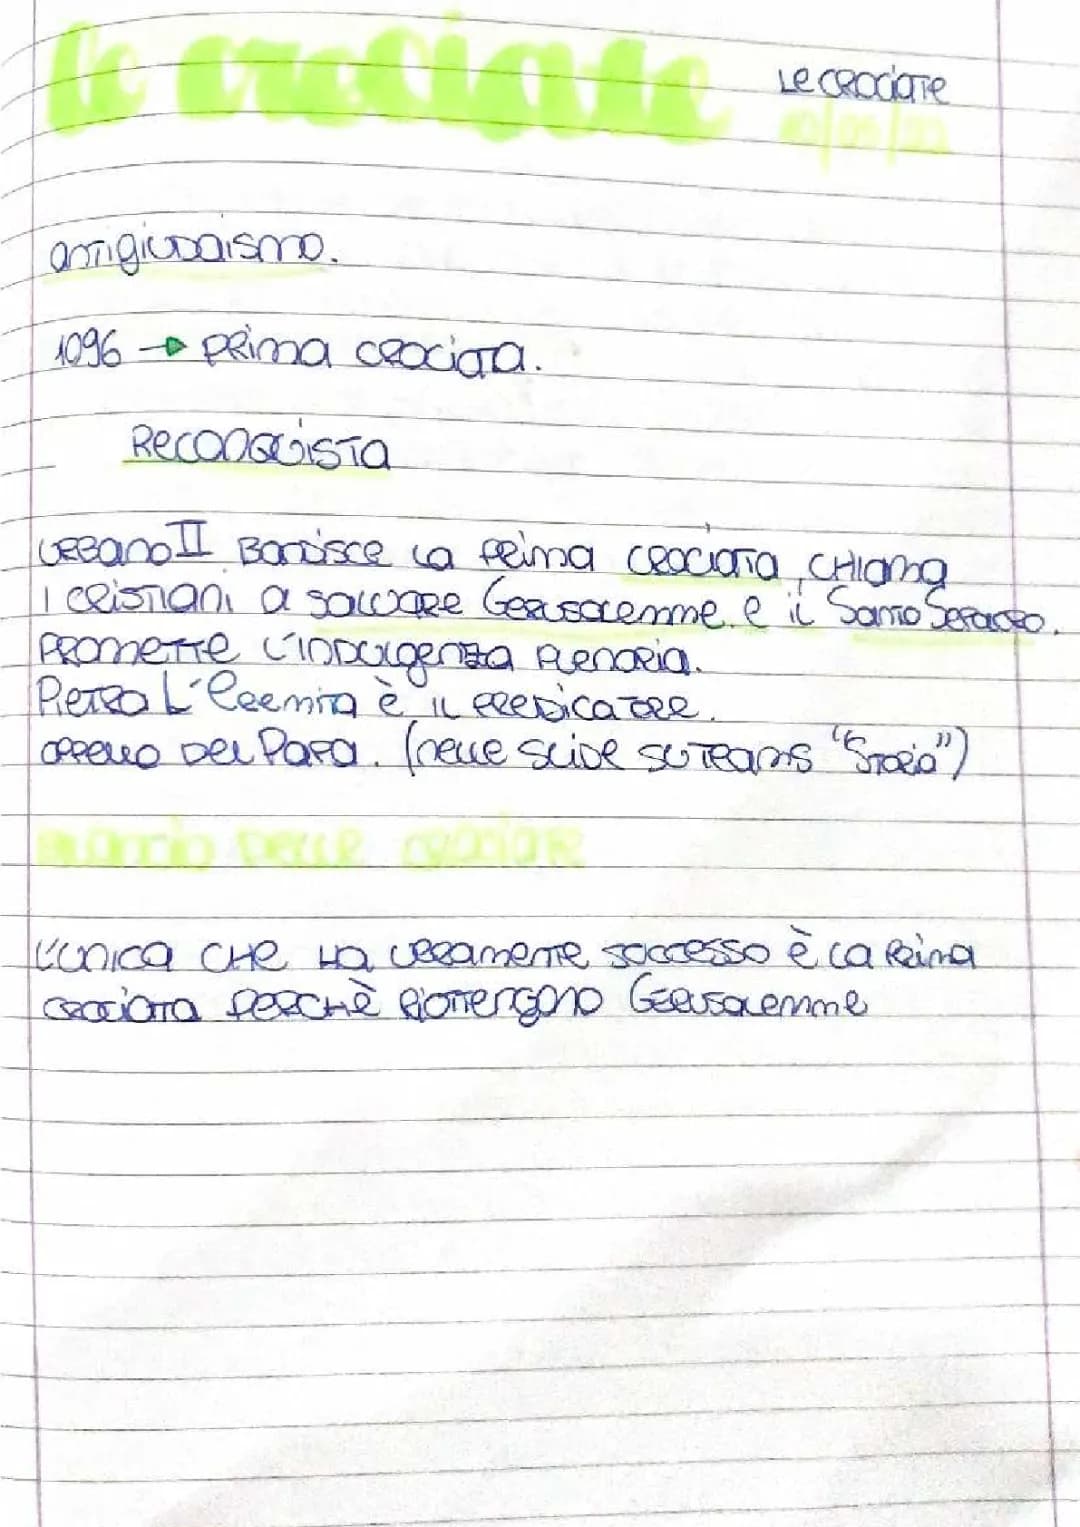 le crociate
Le crociate
antigiudaismo.
1096 → prima crociata.
Reconquista
Urbano II Bandisce la prima crociata, chiama
i cristiani a salvare Gerusalemme. e il Santo Sepolcro.
Promette l'indulgenza plenaria.
Pietro L'Eremita è il predicatore.
appello del Papa. (nelle slide su Teams "Storia")
delle crociate
L'unica che ha veramente successo è la prima
crociata perchè riottengono Gerusalemme